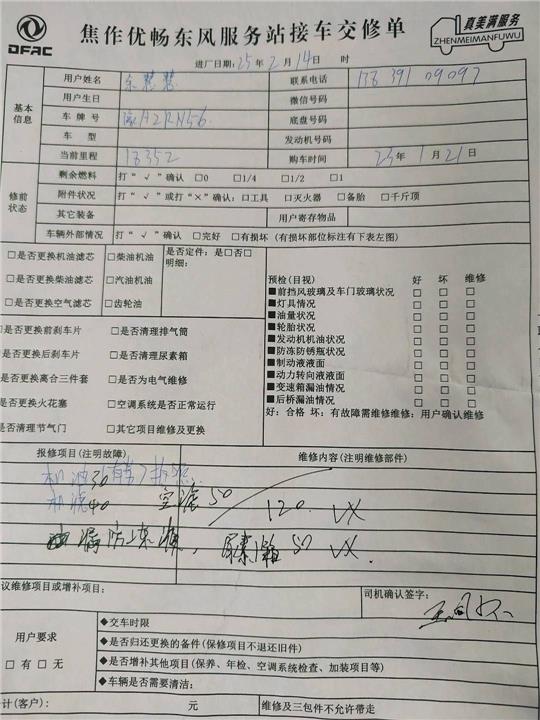 DFAC 焦作优畅东风服务站接车交修单 真美满服务 ZHENMEIMANFUWU
进厂日期:25年2月14日 时
基本信息
用户姓名 联系电话 13839109097
用户生日 微信号码
车牌号 底盘号码
车型 发动机号码
当前里程 18352 购车时间 23年1月21日
修前状态
剩余燃料 打“√”确认 □0 □1/4 □1/2 □1
附件状况 打“√”或打“×”确认:□工具 □灭火器 □备胎 □千斤顶
其它装备 用户寄存物品
车辆外部情况 打“√”确认 □完好 □有损坏(有损坏部位标注有下表左图)
□是否更换机油滤芯 □柴油机油 是否定件:是□否□
明细:
□是否更换柴油滤芯 □汽油机油
□是否更换空气滤芯 □齿轮油
预检(目视) 好 坏 维修
■前挡风玻璃及车门玻璃状况 □ □ □
■灯具情况 □ □ □
■油量状况 □ □ □
■轮胎状况 □ □ □
■发动机机油状况 □ □ □
■防冻防锈瓶状况 □ □ □
■制动液液面 □ □ □
■动力转向液液面 □ □ □
■变速箱漏油情况 □ □ □
■后桥漏油情况 □ □ □
好:合格 坏:有故障需维修维修:用户确认维修
□是否更换前刹车片 □是否清理排气筒
□是否更换后刹车片 □是否清理尿素箱
□是否更换离合三件套 □是否为电气维修
□是否更换火花塞 □空调系统是否正常运行
□是否清理节气门 □其它项目维修及更换
报修项目(注明故障) 维修内容(注明维修部件)
机油30
机滤40 空滤50 120
尿素箱 50
议维修项目或增补项目: 司机确认签字:
用户要求
□有□无
◆交车时限
◆是否归还更换的备件(保修项目不退还旧件)
◆是否增补其他项目(保养、年检、空调系统检查、加装项目等)
◆车辆是否需要清洁:
计(客户): 元 维修及三包件不允许带走